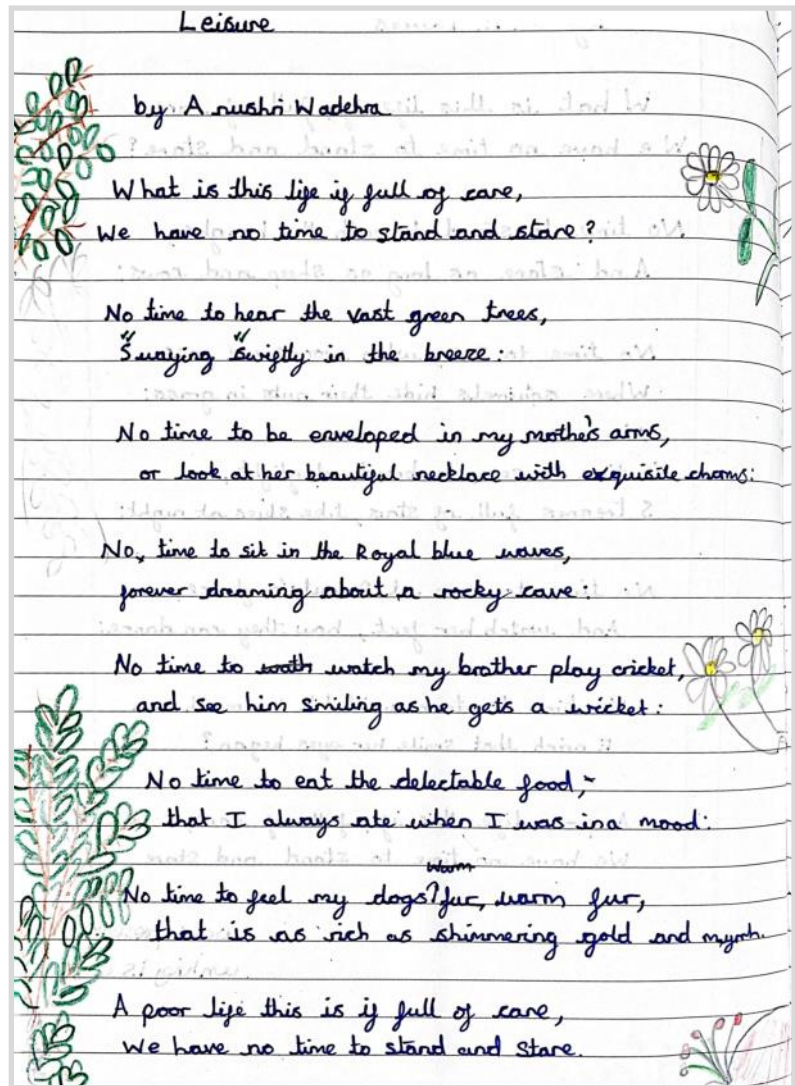 Leisure
by Anushri Wadehra
What is this life if full of care,
We have no time to stand and stare?
No time to hear the vast green trees,
Swaying swiftly in the breeze:
No time to be enveloped in my mothe's arms,
or look at her beautiful necklace with exquisite charms:
No, time to sit in the Royal blue waves,
forever dreaming about a rocky cave:
No time to watch my brother play cricket,
and see him smiling as he gets a wicket:
No time to eat the delectable food,-
that I always ate when I was in a mood:
warm
No time to feel my dogs? fur, warm fur,
that is as rich as shimmering gold and myrrh.
A poor life this is if full of care,
We have no time to stand and Stare.